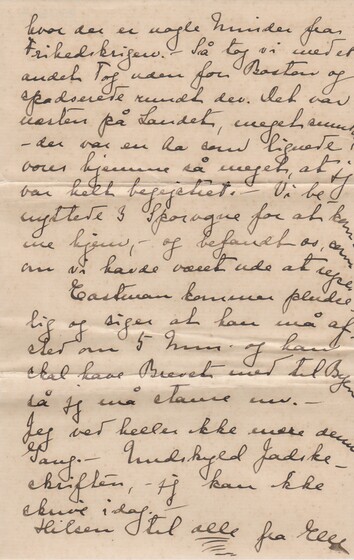 hvor der er nogle Minder fra
Frihedskrigen. - Så tog vi med et
andet Tog uden for Boston og
spadserede rundt der. Det var
næsten på Landet, meget smukt
- der var en Aa som lignede
vores hjemme så meget, at jeg
var helt begejstret. - Vi be
nyttede 3 Sporvogne for at kom
me hjem, - og befandt os, som
om vi havde været ude at rejse
Eastman kommer pludse
lig og siger at han må af
sted om 5 Min. og han
skal have Brevet med til Byen
så jeg må stanse nu. -
Jeg ved heller ikke mere denne
Gang. - Undskyld Jadske-
skriften, - jeg kan ikke
skrive idag. -
Hilsen til alle fra Elle